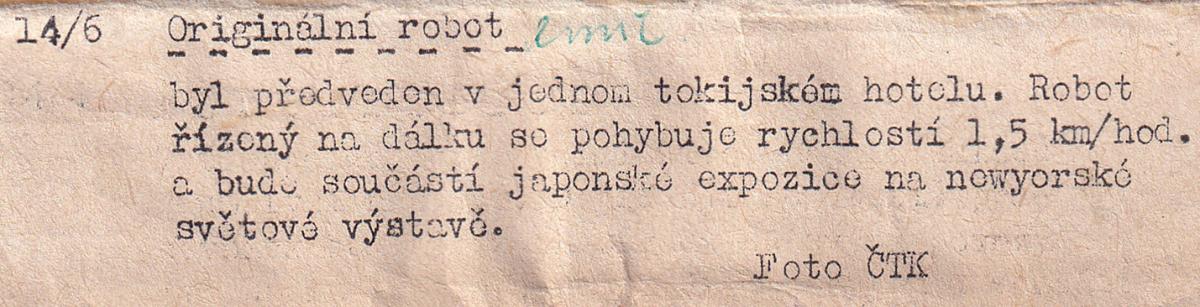 14/6 Originální robot
byl předveden v jednom tokijském hotelu. Robot
řízený na dálku se pohybuje rychlostí 1,5 km/hod.
a bude součástí japonské expozice na newyorské
světové výstavě.
Foto ČTK